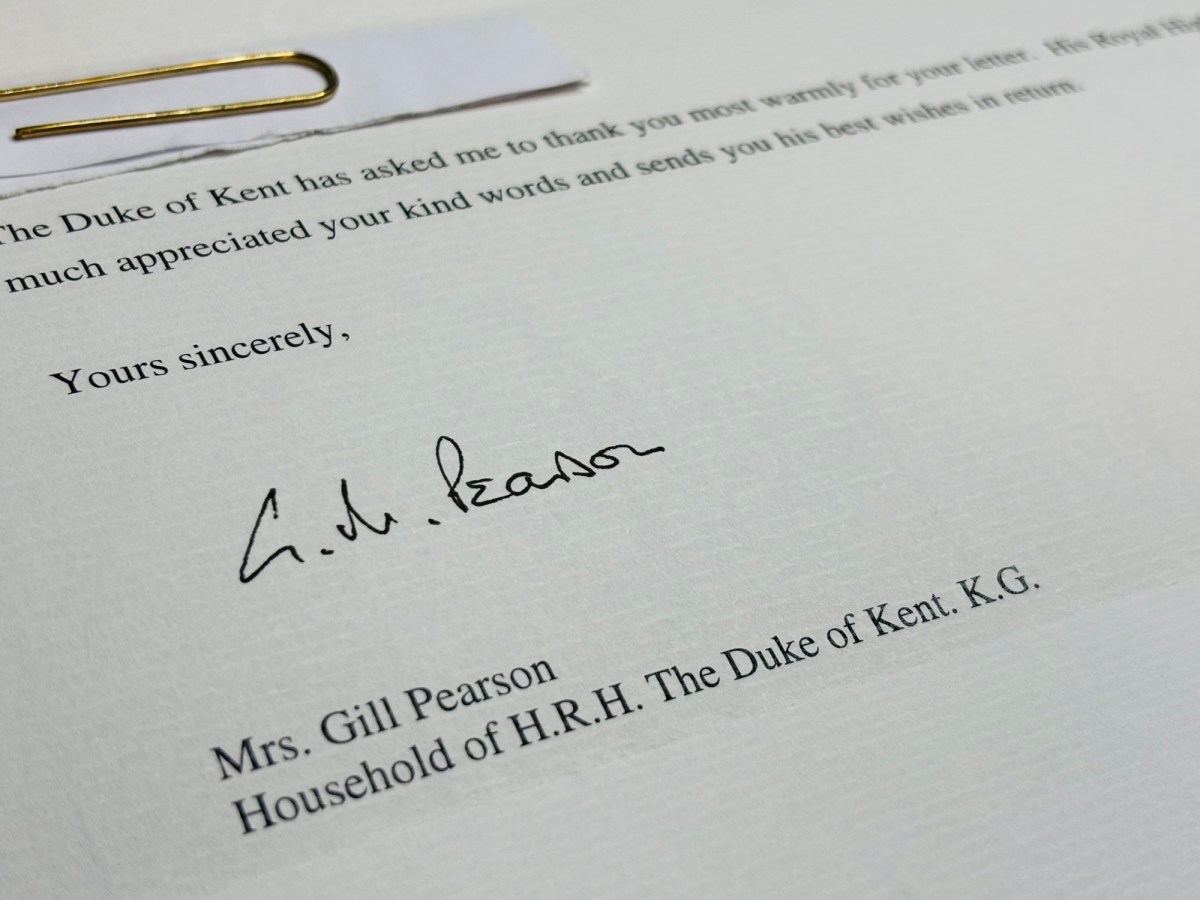 The Duke of Kent has asked me to thank you most warmly for your letter. His Royal Hig
much appreciated your kind words and sends you his best wishes in return.
Yours sincerely,
G. M. Pearson
Mrs. Gill Pearson
Household of H.R.H. The Duke of Kent. K.G.